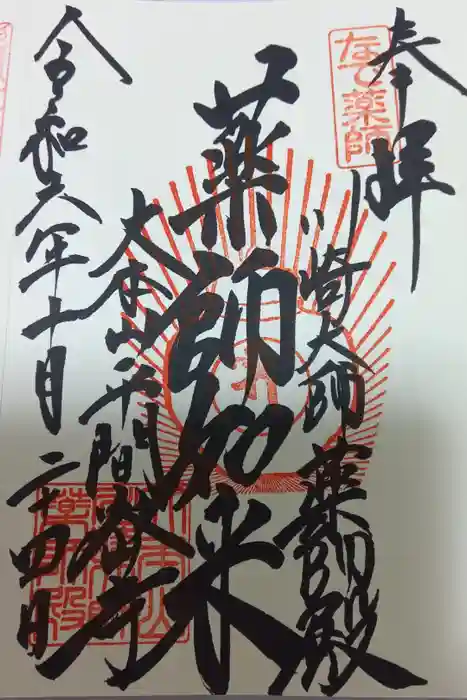 奉拝
なで薬師
川崎大師 薬師殿
薬師如来
大本山平間寺
令和六年十月二十四日